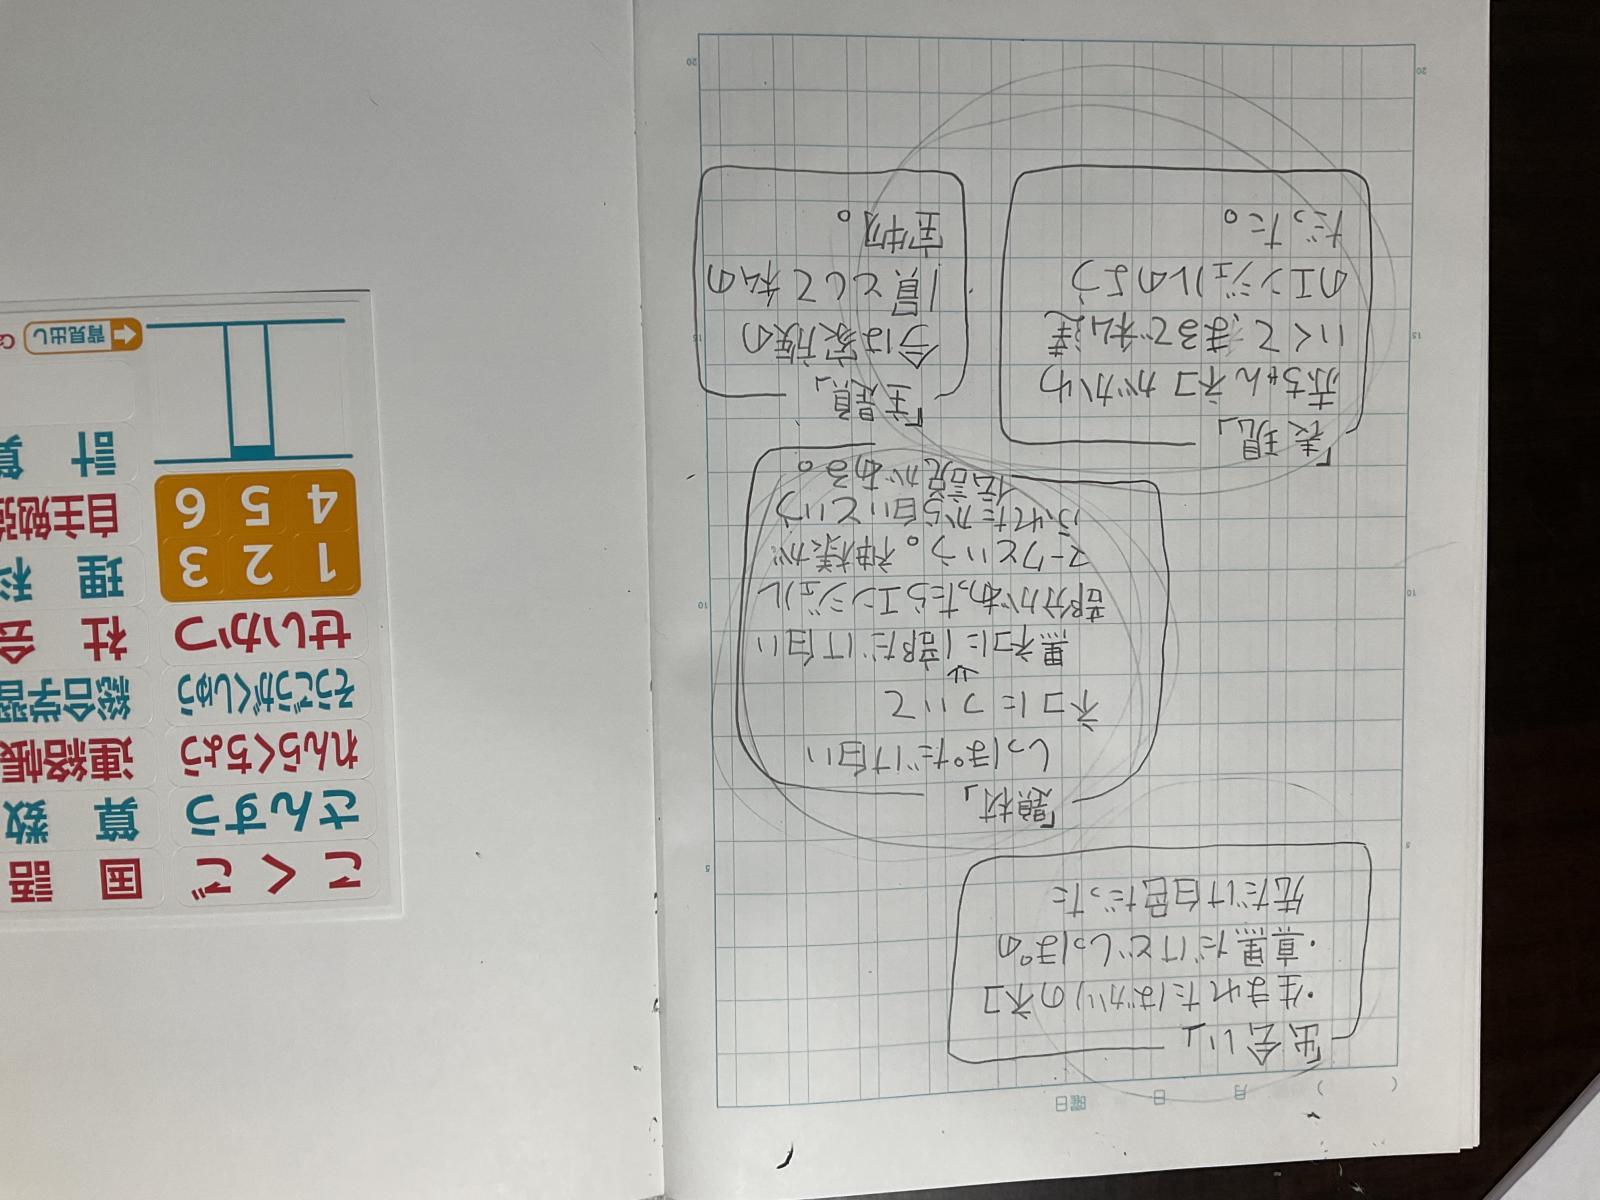 月 日 曜日
「出会い」
・生まれたばかりのネコ
・真黒だけどしっぽの
先だけ白色だった
「題材」
しっぽだけ白い
ネコについて
↓
黒ネコに1部だけ白い
部分があったらエンジェル
マークという。神様が
ふれたから白いという
伝説がある。
「表現」
赤ちゃんネコがかわ
いくて、まるで私達
のエンジェルのよう
だった。
「主題」
今は家族の
1員として私の
宝物。
5
10
15
20
こくご
国語
さんすう
算数
れんらくちょう
連絡帳
そうごうがくしゅう
総合学習
せいかつ
社会
1 2 3
理科
4 5 6
自主勉強
計算
背見出し